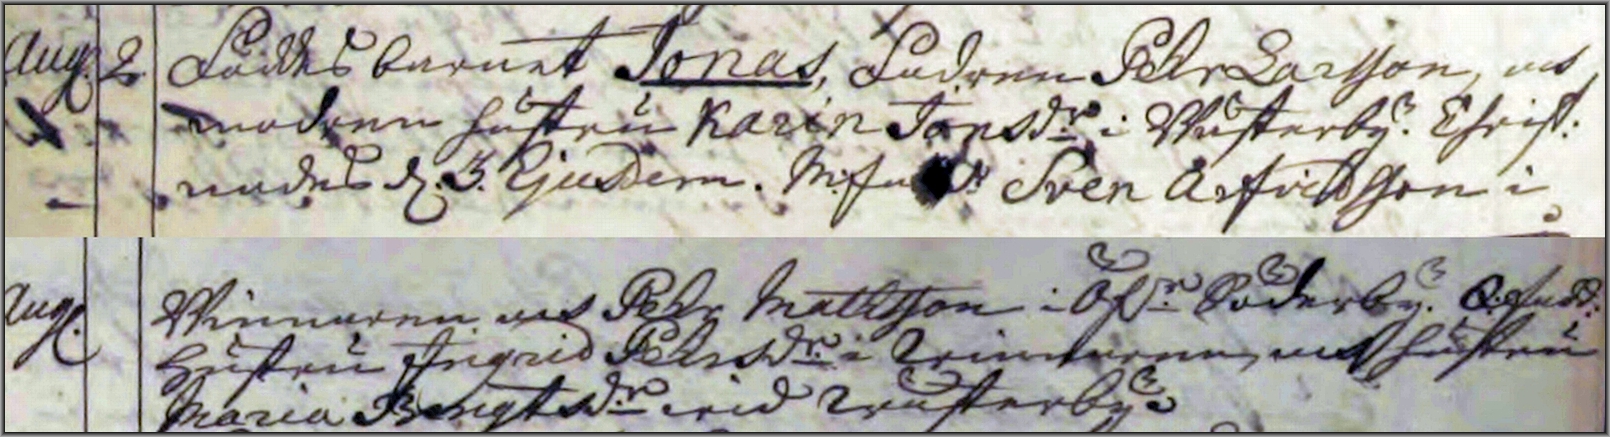 Aug. 2. Föddes barnet Jonas, Fadren Pehr Larsson, och
modren hustru Karin Jonsd:r i Wästerby. Christ-
nades d. 3. Ejusdem. M. fadd: Sven Arfvidsson i
Aug. Winnaren och Pehr Mattsson i Öf:r Söderby. Q. fadd:
hustru Ingrid Pehrsd:r i Winnaren, och hustru
Maria Bengtsd:r wid Wästerby.